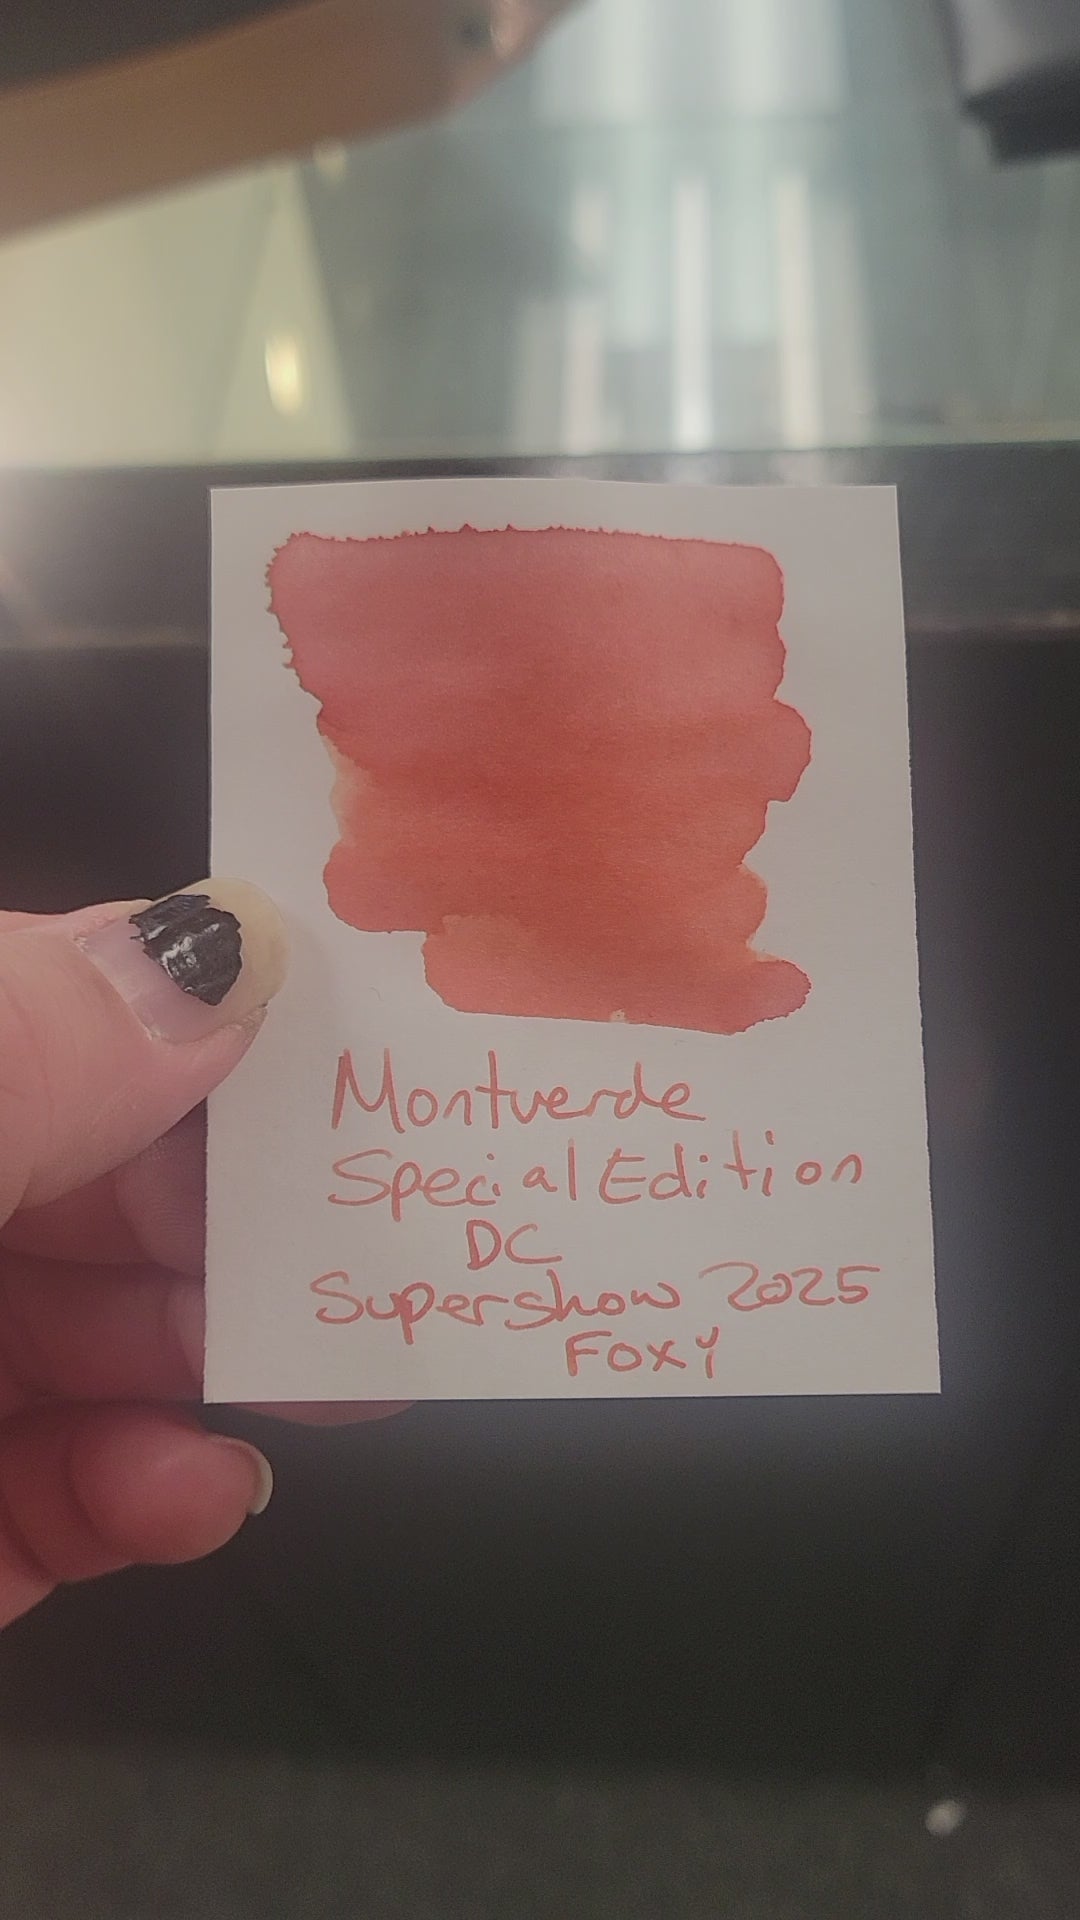 Montverde
Special Edition
DC
Supershow 2025
Foxy